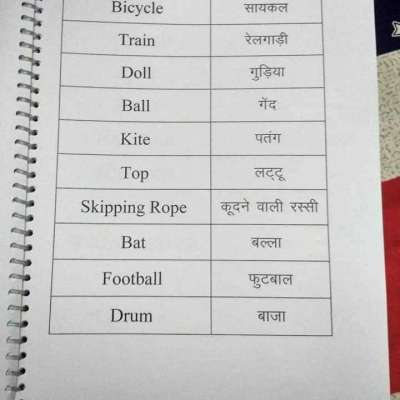 Bicycle सायकल
Train रेलगाड़ी
Doll गुड़िया
Ball गेंद
Kite पतंग
Top लट्टू
Skipping Rope कूदने वाली रस्सी
Bat बल्ला
Football फुटबाल
Drum बाजा